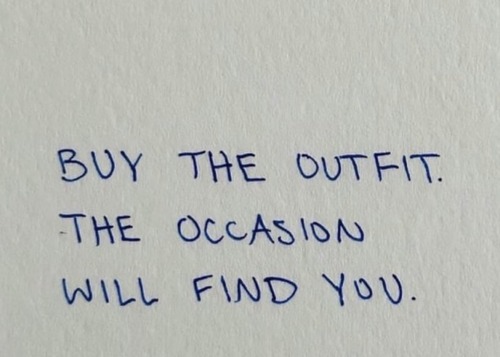 BUY THE OUTFIT.
THE OCCASION
WILL FIND YOU.